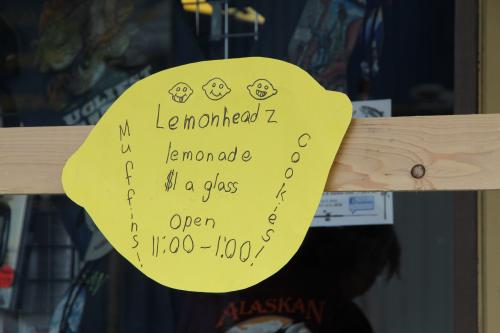 Lemonheadz
lemonade
$1 a glass
Open
11:00-1:00
Muffins!
Cookies!
ALASKAN